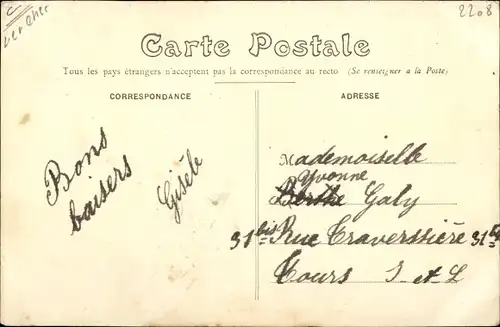 2208
Carte Postale
Tous les pays étrangers n'acceptent pas la correspondance au recto (Se renseigner a la Poste)
CORRESPONDANCE
Bons
baisers
Gisèle
ADRESSE
Mademoiselle
Yvonne
Berthe Galy
31 bis Rue Traverssière 31 bis
Tours I-et-L